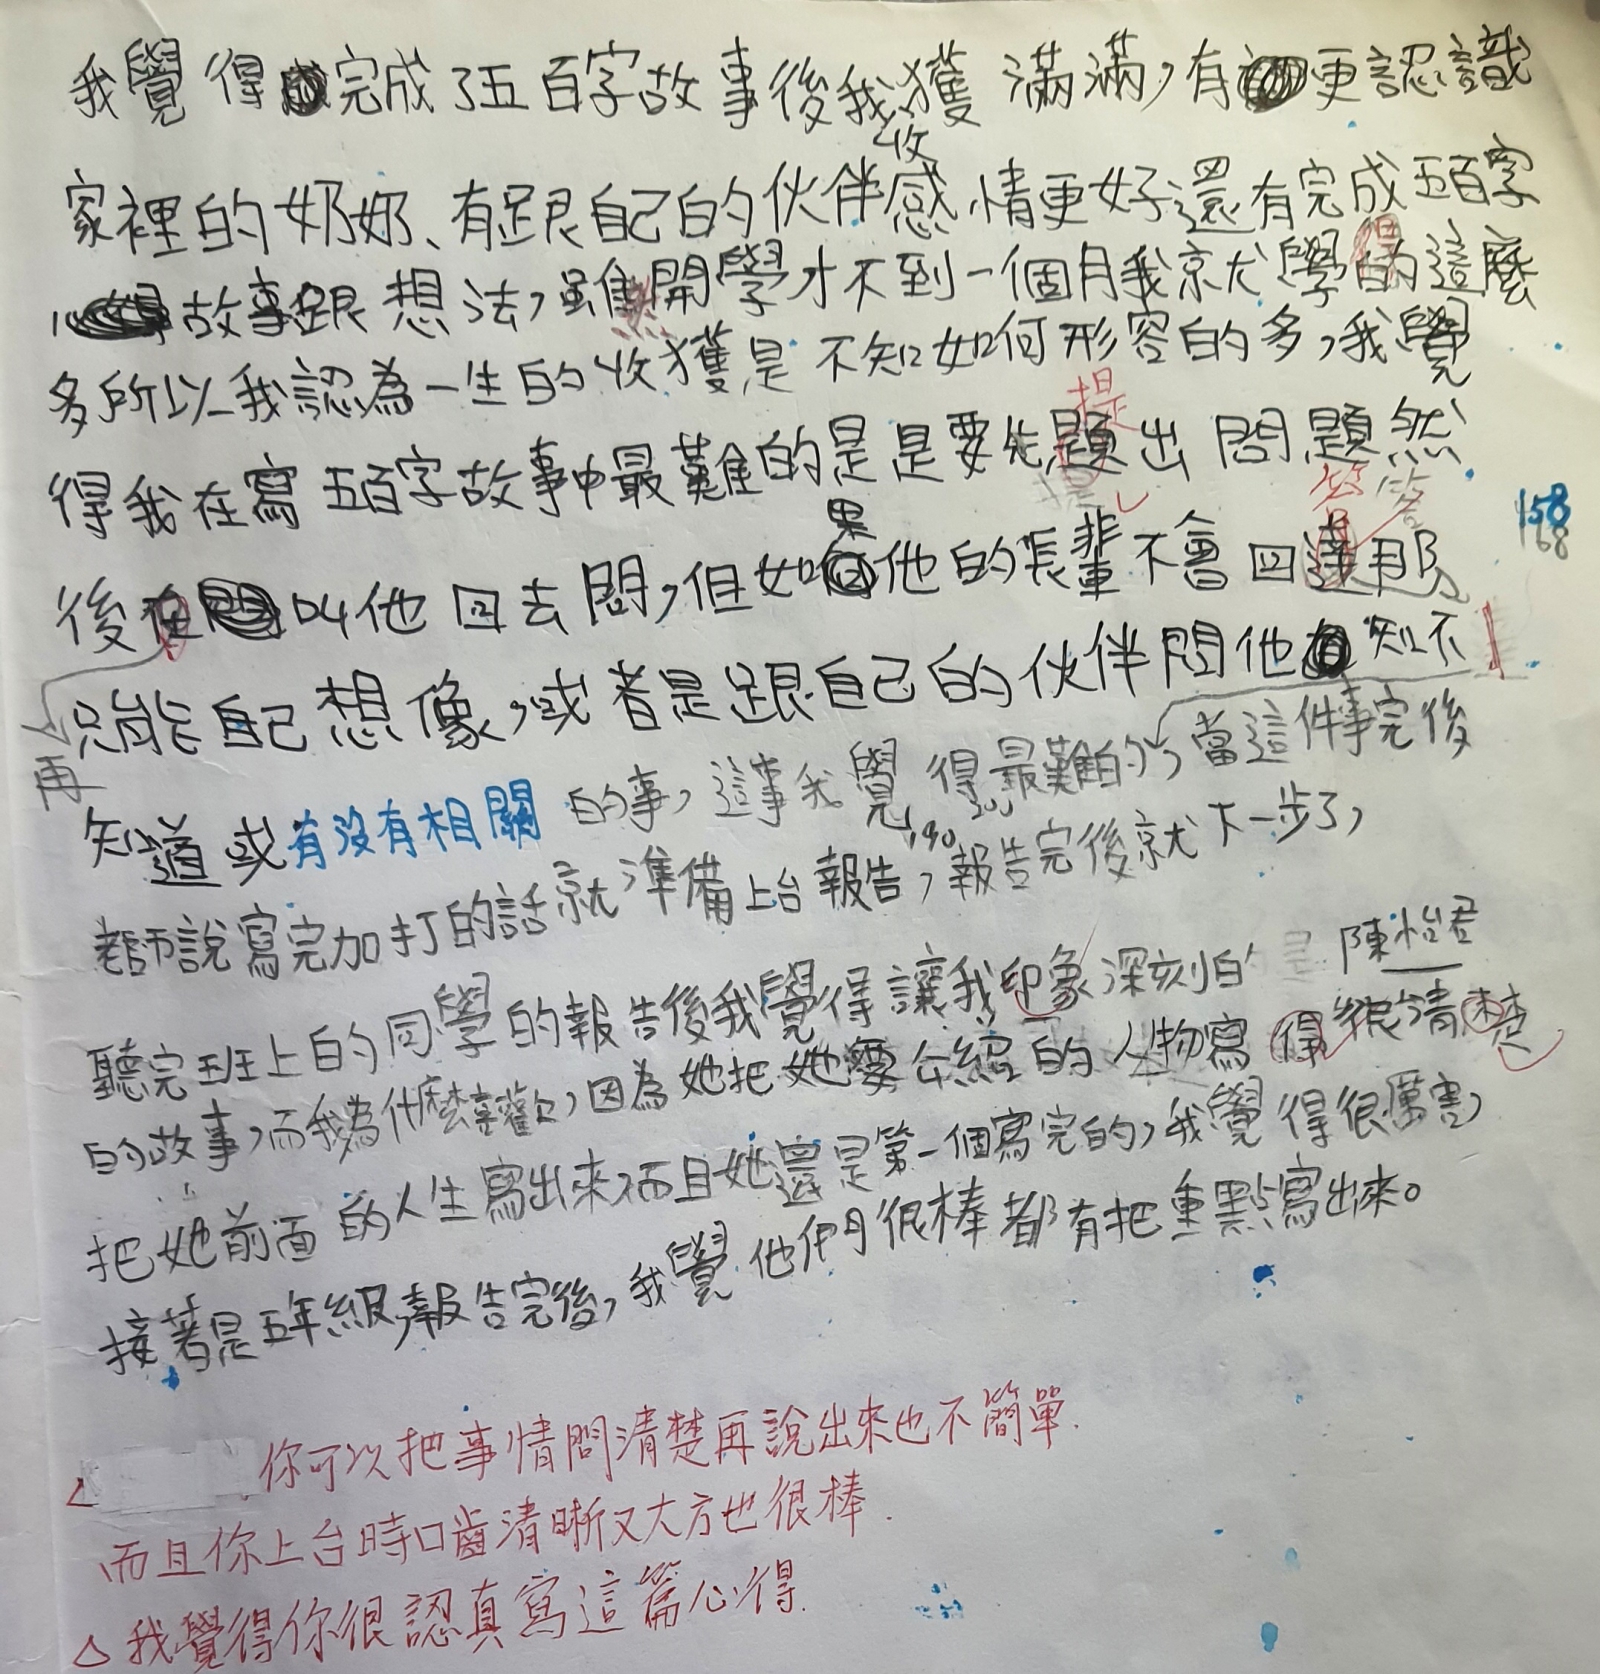 我覺得完成了五百字故事後我收獲滿滿,有更認識
家裡的奶奶、有跟自己的伙伴感情更好還有完成五百字
故事跟想法,雖然開學才不到一個月我就學得這麼
多所以我認為一生的收獲是不知如何形容的多,我覺
得我在寫五百字故事中最難的是是要先提出問題然
後再叫他回去問,但如果他的長輩不會回答那
只能自己想像,或者是跟自己的伙伴問他知不
知道或有沒有相關的事,這事我覺得最難的,當這件事完後
老師說寫完加打的話就準備上台報告,報告完後就下一步了,
聽完班上的同學的報告後我覺得讓我印象深刻的是陳怡君
的故事,而我為什麼喜歡,因為她把她要介紹的人物寫得很清楚
把她前面的人生寫出來而且她還是第一個寫完的,我覺得很厲害,
接著是五年級,報告完後,我覺他們很棒都有把重點寫出來。
你可以把事情問清楚再說出來也不簡單.
而且你上台時口齒清晰又大方也很棒.
△我覺得你很認真寫這篇心得.
158
168
190